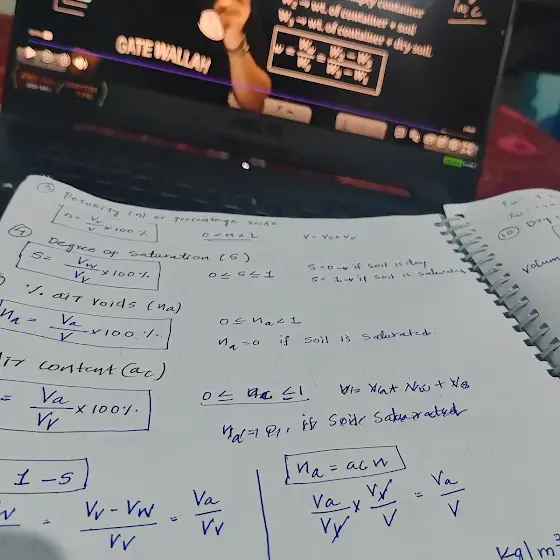 W₂ → wt. of container + soil
W₃ → wt. of container + dry soil
w = Ww/Ws = W₂ - W₃/W₃ - W₁
GATE WALLAH
③ Porosity (n) or percentage voids
n = Vv/V × 100 %
0 < n < 1
④ Degree of saturation (S)
S = Vw/Vv × 100 %
0 ≤ S ≤ 1
S = 0 → if soil is dry
S = 1 → if soil is saturated
% air voids (na)
na = Va/V × 100 %
0 ≤ na < 1
na = 0 if soil is saturated.
content (ac)
= Va/Vv × 100 %
0 ≤ ac ≤ 1
if soil saturated
1 - S
= Vv - Vw/Vv = Va/Vv
na = ac n
Va/Vv × Vv/V = Va/V
⑩ Dry
Volum
kg/m³